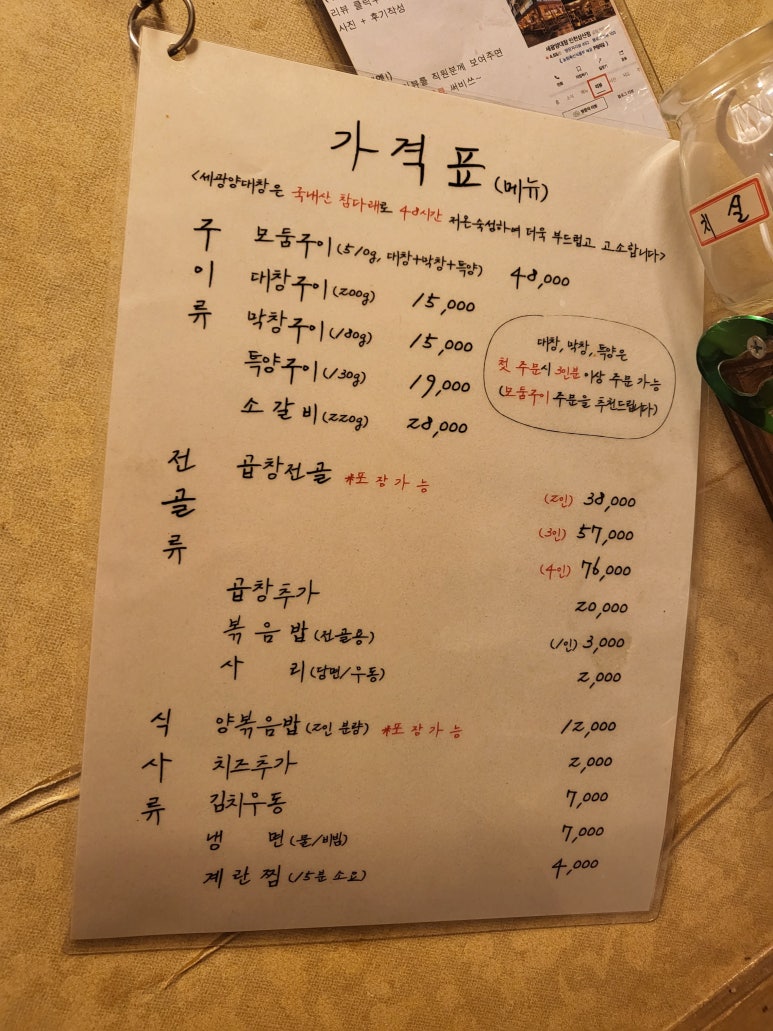 리뷰 클릭
사진 + 후기작성
리뷰를 직원분께 보여주면
써비쓰~
세광양대창 인천삼산점
치 실
가격표 (메뉴)
<세광양대창은 국내산 참다래로 48시간 저온숙성하여 더욱 부드럽고 고소합니다>
구이류
모둠구이 (510g, 대창+막창+특양) 48,000
대창구이 (200g) 15,000
막창구이 (180g) 15,000
특양구이 (130g) 19,000
소갈비 (220g) 28,000
대창, 막창, 특양은
첫 주문시 3인분 이상 주문 가능
(모둠구이 주문을 추천드립니다)
전골류
곱창전골 *포장가능
(2인) 38,000
(3인) 57,000
(4인) 76,000
곱창추가 20,000
볶음밥 (전골용) (1인) 3,000
사 리 (당면/우동) 2,000
식사류
양볶음밥 (2인 분량) *포장가능 12,000
치즈추가 2,000
김치우동 7,000
냉 면 (물/비빔) 7,000
계란찜 (15분 소요) 4,000